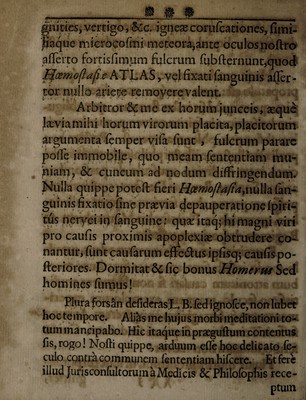 gnities, vertigo, &c. igneæ coruscationes, simi-
liaque microcosmi meteora, ante oculos nostro
asserto fortissimum fulcrum substernunt, quod
Hæmostasiæ ATLAS, vel fixati sanguinis asser-
tor nullo ariete removere valent.
Arbitror & me ex horum junceis, æquè
lævia mihi horum virorum placita, placitorum
argumenta semper visa sunt, fulcrum parare
posse immobile, quo meam sententiam mu-
niam, & cuneum ad nodum diffringendum.
Nulla quippe potest fieri Hæmostasia, nulla san-
guinis fixatio sine prævia depauperatione spiri-
tûs nervei in sanguine: quæ itaq; hi magni viri
pro causis proximis apoplexiæ obtrudere co-
nantur, sunt causarum effectus ipsisq; causis po-
steriores. Dormitat & sic bonus Homerus Sed
homines sumus!
Plura forsàn desideras L. B. sed ignosce, non lubet
hoc tempore. Aliàs me hujus morbi meditationi to-
tum mancipabo. Hic itaque in prægustum contentus
sis, rogo! Nosti quippe, arduum esse hoc delicato se-
culo contrà communem sententiam hiscere. Et fere
illud Jurisconsultorum à Medicis & Philosophis rece-
ptum